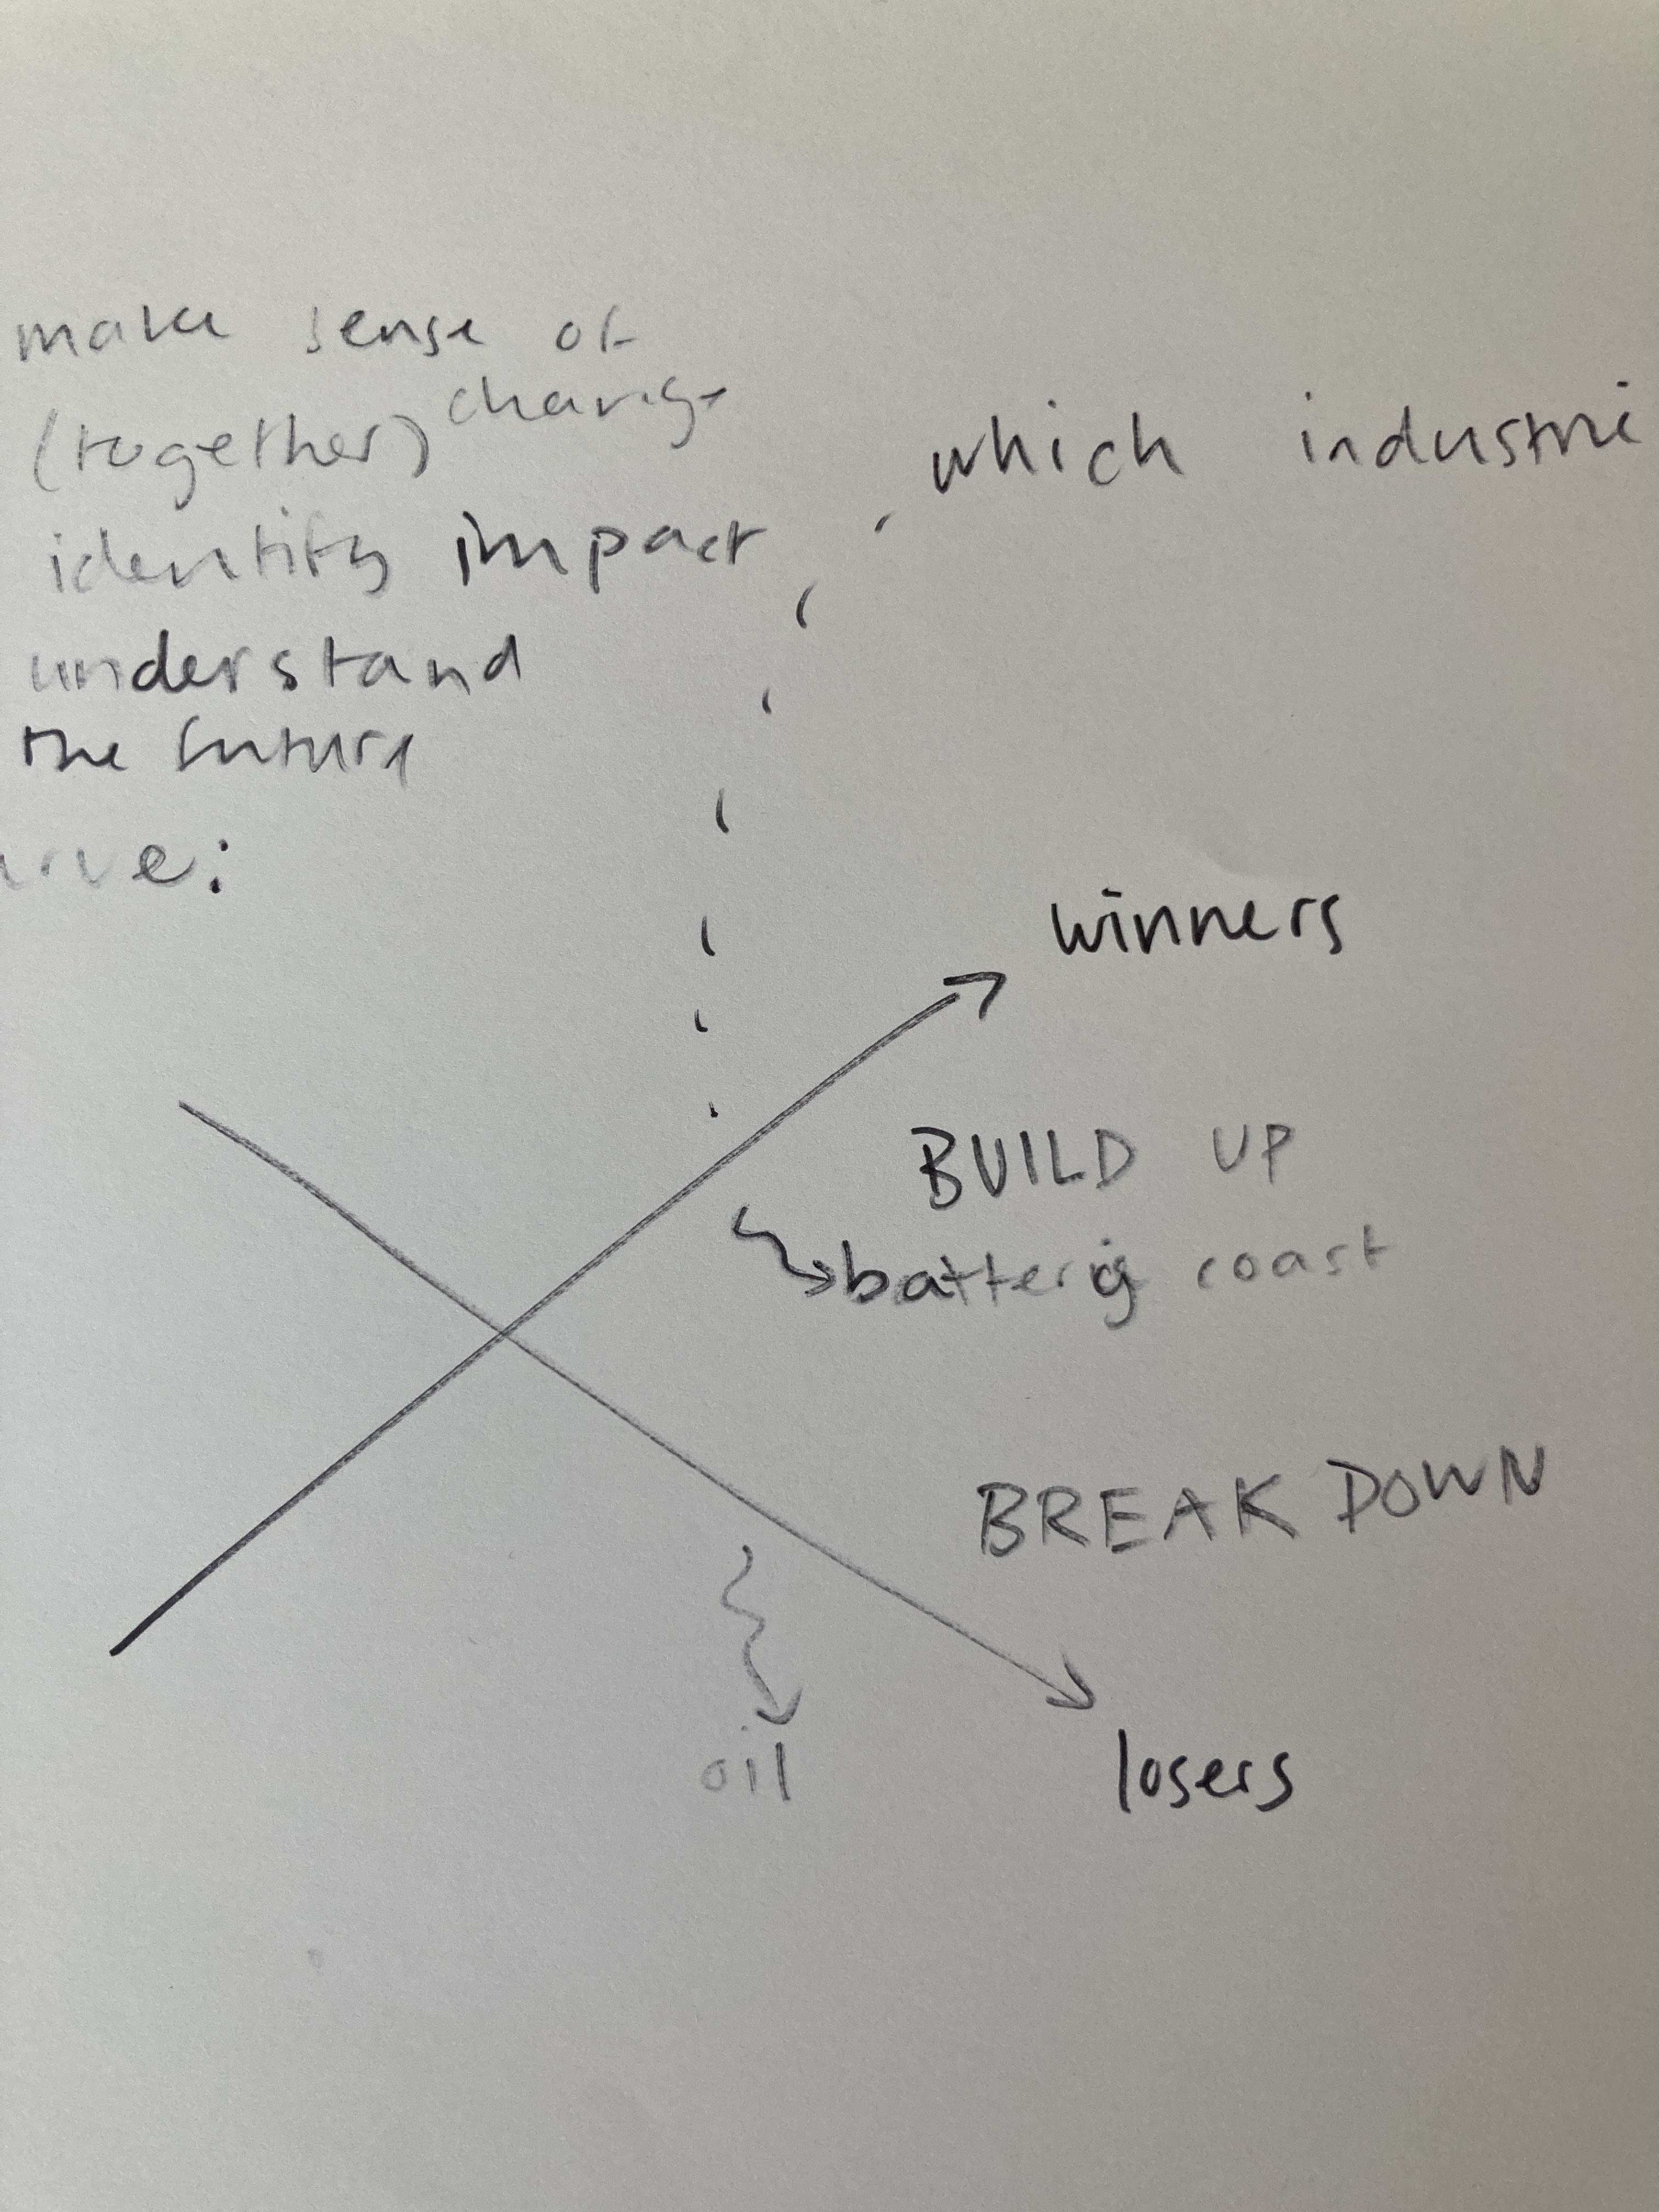 make sense of
(together) change
identity impact
understand
the future
which industrie
winners
BUILD UP
coast
BREAK DOWN
oil
losers